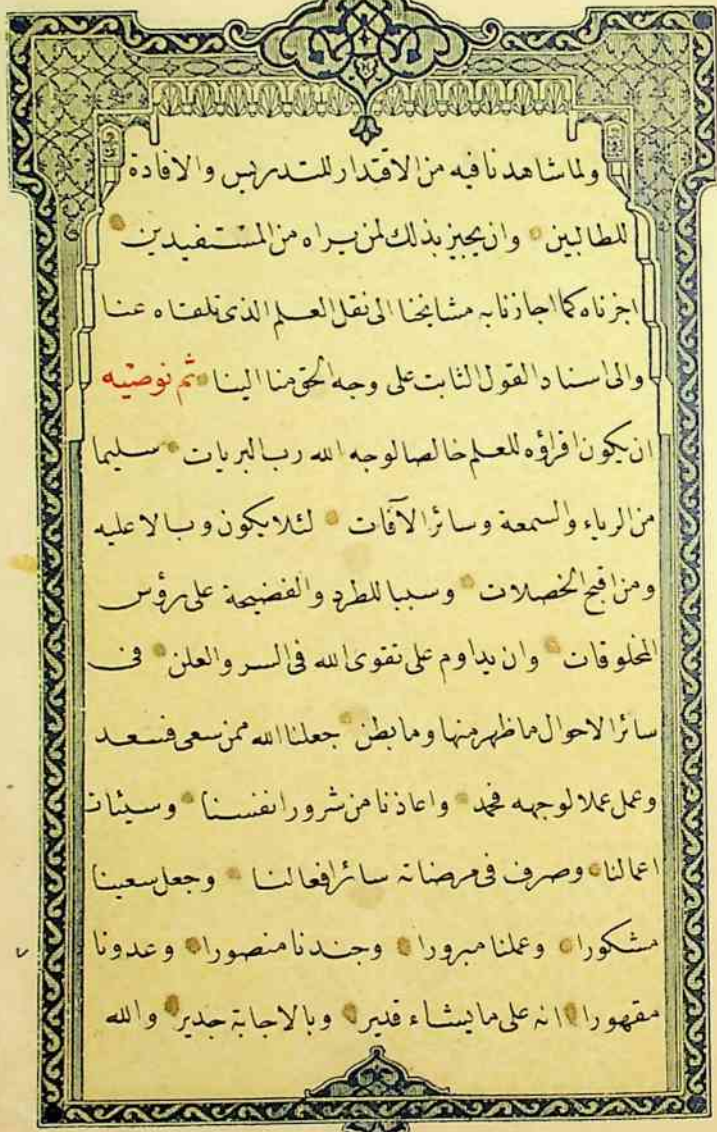 ولما شاهدنا فيه من الاقتدار للتدريس والافادة
للطالبين وان يجيز بذلك لمن يراه من المستفيدين
اجزناه كما اجازنا به مشايخنا الى نقل العلم الذى تلقاه عنا
والى اسناد القول الثابت على وجه الحق منا الينا ثم نوصيه
ان يكون اقراؤه للعلم خالصا لوجه الله رب البريات سليما
من الرياء والسمعة وسائر الآفات لئلا يكون وبالا عليه
ومن اقبح الخصلات وسببا للطرد والفضيحة على رؤس
المخلوقات وان يداوم على تقوى الله فى السر والعلن فى
سائر الاحوال ما ظهر منها وما بطن جعلنا الله ممن سعى فسعد
وعمل عملا لوجهه فحمد واعاذنا من شرور انفسنا وسيئات
اعمالنا وصرف فى مرضاته سائر افعالنا وجعل سعينا
مشكورا وعملنا مبرورا وجندنا منصورا وعدونا
مقهورا انه على ما يشاء قدير وبالاجابة جدير والله